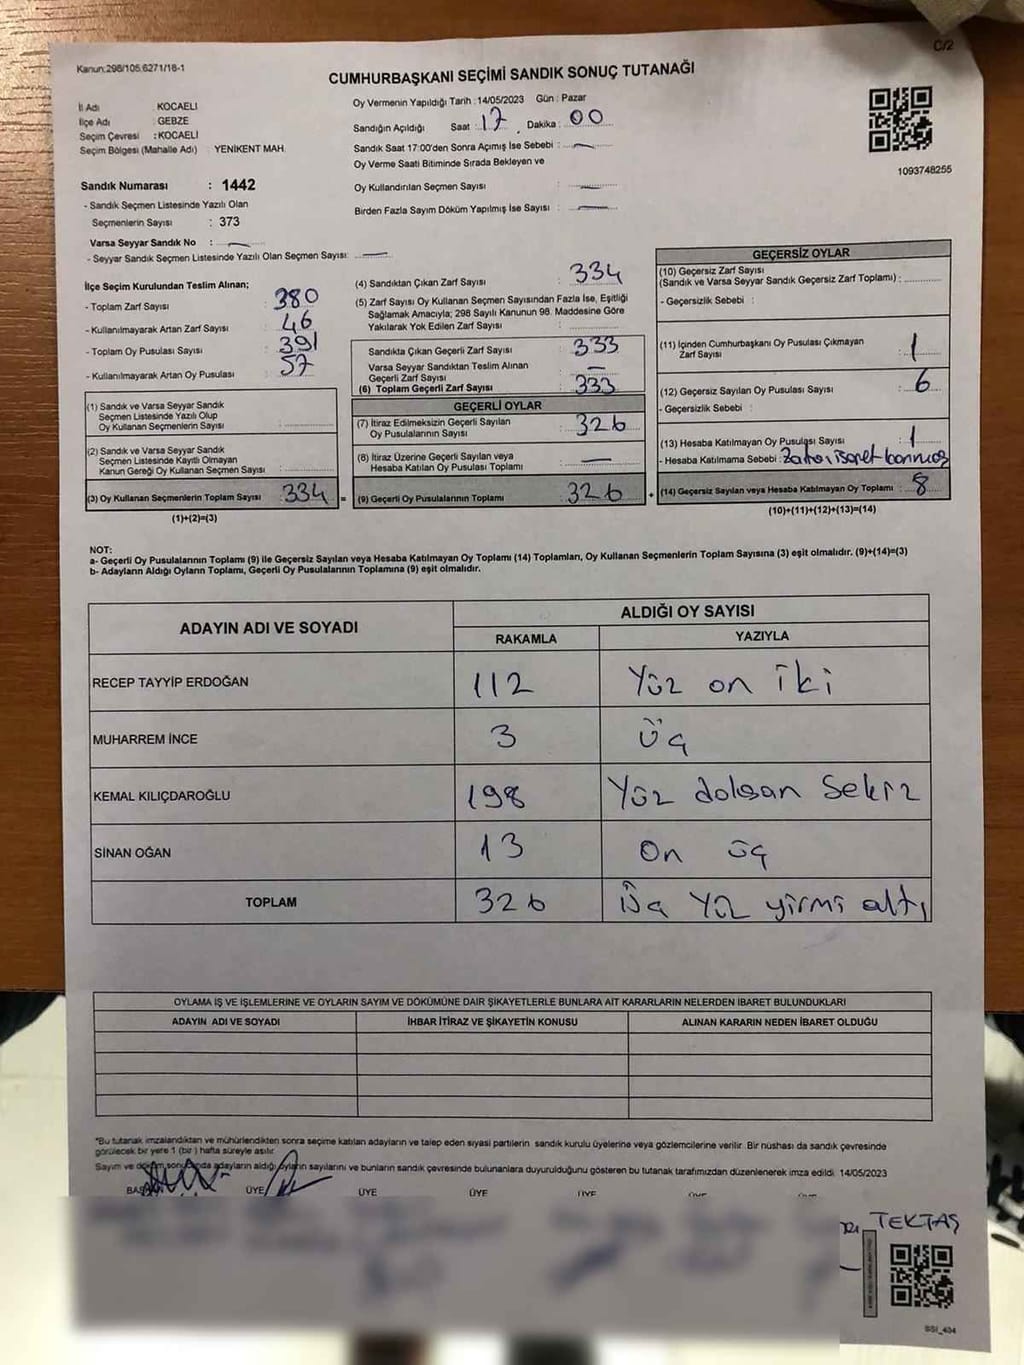 C/2
Kanun:298/105.6271/16-1
CUMHURBAŞKANI SEÇİMİ SANDIK SONUÇ TUTANAĞI
İl Adı : KOCAELİ
İlçe Adı : GEBZE
Seçim Çevresi : KOCAELİ
Seçim Bölgesi (Mahalle Adı) : YENİKENT MAH.
Sandık Numarası : 1442
- Sandık Seçmen Listesinde Yazılı Olan
Seçmenlerin Sayısı : 373
Varsa Seyyar Sandık No :
- Seyyar Sandık Seçmen Listesinde Yazılı Olan Seçmen Sayısı:
Oy Vermenin Yapıldığı Tarih :14/05/2023 Gün : Pazar
Sandığın Açıldığı Saat : 17 . Dakika : 00
Sandık Saat 17:00'den Sonra Açımış İse Sebebi :
Oy Verme Saati Bitiminde Sırada Bekleyen ve
Oy Kullandırılan Seçmen Sayısı :
Birden Fazla Sayım Döküm Yapılmış İse Sayısı :
1093748255
İlçe Seçim Kurulundan Teslim Alınan;
- Toplam Zarf Sayısı : 380
- Kullanılmayarak Artan Zarf Sayısı : 46
- Toplam Oy Pusulası Sayısı : 391
- Kullanılmayarak Artan Oy Pusulası : 57
(1) Sandık ve Varsa Seyyar Sandık
Seçmen Listesinde Yazılı Olup
Oy Kullanan Seçmenlerin Sayısı :
(2) Sandık ve Varsa Seyyar Sandık
Seçmen Listesinde Kayıtlı Olmayan
Kanun Gereği Oy Kullanan Seçmen Sayısı :
(3) Oy Kullanan Seçmenlerin Toplam Sayısı : 334 =
(1)+(2)=(3)
(4) Sandıktan Çıkan Zarf Sayısı : 334
(5) Zarf Sayısı Oy Kullanan Seçmen Sayısından Fazla İse, Eşitliği
Sağlamak Amacıyla; 298 Sayılı Kanunun 98. Maddesine Göre
Yakılarak Yok Edilen Zarf Sayısı :
Sandıkta Çıkan Geçerli Zarf Sayısı : 333
Varsa Seyyar Sandıktan Teslim Alınan
Geçerli Zarf Sayısı :
(6) Toplam Geçerli Zarf Sayısı : 333
GEÇERLİ OYLAR
(7) İtiraz Edilmeksizin Geçerli Sayılan
Oy Pusulalarının Sayısı : 326
(8) İtiraz Üzerine Geçerli Sayılan veya
Hesaba Katılan Oy Pusulası Toplamı :
(9) Geçerli Oy Pusulalarının Toplamı : 326 +
GEÇERSİZ OYLAR
(10) Geçersiz Zarf Sayısı
(Sandık ve Varsa Seyyar Sandık Geçersiz Zarf Toplamı) :
- Geçersizlik Sebebi :
(11) İçinden Cumhurbaşkanı Oy Pusulası Çıkmayan
Zarf Sayısı : 1
(12) Geçersiz Sayılan Oy Pusulası Sayısı : 6
- Geçersizlik Sebebi :
(13) Hesaba Katılmayan Oy Pusulası Sayısı : 1
- Hesaba Katılmama Sebebi :
(14) Geçersiz Sayılan veya Hesaba Katılmayan Oy Toplamı : 8
(10)+(11)+(12)+(13)=(14)
NOT:
a- Geçerli Oy Pusulalarının Toplamı (9) ile Geçersiz Sayılan veya Hesaba Katılmayan Oy Toplamı (14) Toplamları, Oy Kullanan Seçmenlerin Toplam Sayısına (3) eşit olmalıdır. (9)+(14)=(3)
b- Adayların Aldığı Oyların Toplamı, Geçerli Oy Pusulalarının Toplamına (9) eşit olmalıdır.
ADAYIN ADI VE SOYADI
ALDIĞI OY SAYISI
RAKAMLA YAZIYLA
RECEP TAYYİP ERDOĞAN 112 Yüz on iki
MUHARREM İNCE 3 Üç
KEMAL KILIÇDAROĞLU 198 Yüz doksan sekiz
SİNAN OĞAN 13 On üç
TOPLAM 326 Üç yüz yirmi altı
OYLAMA İŞ VE İŞLEMLERİNE VE OYLARIN SAYIM VE DÖKÜMÜNE DAİR ŞİKAYETLERLE BUNLARA AİT KARARLARIN NELERDEN İBARET BULUNDUKLARI
ADAYIN ADI VE SOYADI İHBAR İTİRAZ VE ŞİKAYETİN KONUSU ALINAN KARARIN NEDEN İBARET OLDUĞU
*Bu tutanak imzalandıktan ve mühürlendikten sonra seçime katılan adayların ve talep eden siyasi partilerin sandık kurulu üyelerine veya gözlemcilerine verilir. Bir nüshası da sandık çevresinde
görülecek bir yere 1 (bir ) hafta süreyle asılır.
Sayım ve döküm sonucunda adayların aldığı oyların sayılarını ve bunların sandık çevresinde bulunanlara duyurulduğunu gösteren bu tutanak tarafımızdan düzenlenerek imza edildi. 14/05/2023
BAŞKAN ÜYE ÜYE ÜYE ÜYE ÜYE ÜYE
TEKTAŞ
SSI_404